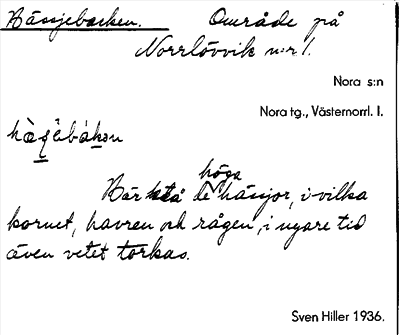 Hässjebacken. Område på
Norrlövvik n:r 1.
Nora s:n
Nora tg., Västernorrl. l.
höga
Här stå de hässjor, i vilka
kornet, havren och rågen, i nyare tid
även vetet torkas.
Sven Hiller 1936.